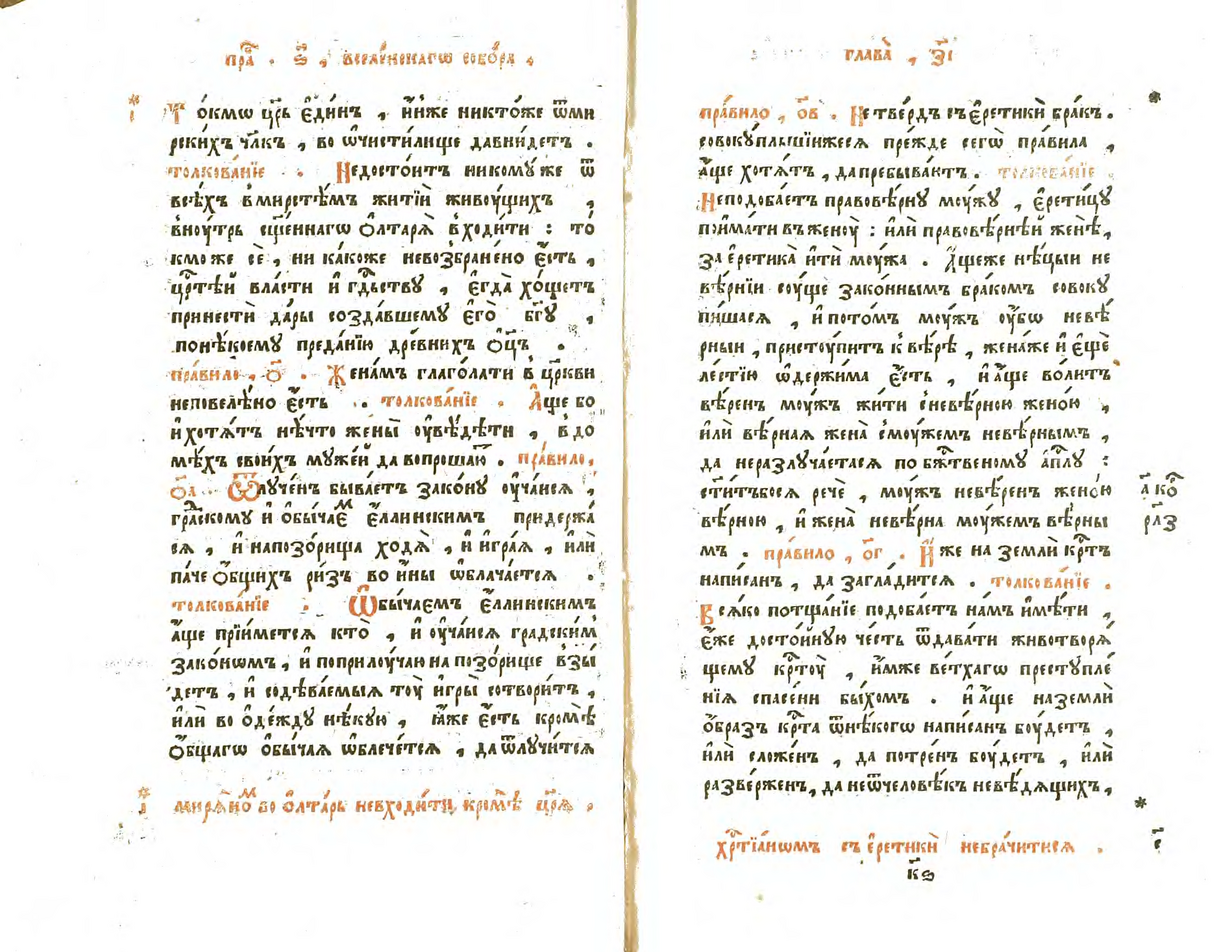 пра́ . ѕ҃ , вселе́нскагѡ собо́ра .
То́кмѡ цр҃ь є҆ди́нъ , и҆и҆́же никто́же ѿми
рскихъ чл҃къ , во ѡ҆чисти́лище давни́детъ .
толкова́нїе . Недосто́итъ никому́же ѿ
всѣ́хъ вмирстѣ́мъ житїи̂ живоу́щихъ ,
вноу́трь сщ҃е́ннагѡ ѻ҆лтарѧ̀ входи́ти : то́
кмо же сѐ , ни ка́коже невозбране́но є҆́сть ,
црⷭ҇тѣй вла́сти и҆ гдⷭ҇ьству , є҆гда̀ хо́щетъ
принестѝ да́ры созда́вшему є҆го̀ бг҃у ,
понѣ́коему преда́нїю дре́внихъ ѻ҆ц҃ъ .
пра́вило , о҃ . Жена́мъ глаго́лати в цр҃кви
неповелѣ́но є҆́сть . толкова́нїе . А҆́ще бо
и҆хотѧ́тъ нѣ́что жены̀ оу҆вѣ́дѣти , вдо
мѣ́хъ свои́хъ муже́й да вопроша́ю . пра́вило ,
о҃а . Ѿлуче́нъ быва́етъ зако́ну оу҆ча́исѧ ,
гра́скому и҆ о҆бы́чае є҆́ллинскимъ придержа́
сѧ , и҆ напозо́рища ходѧ̀ , и҆ игра́ѧ , и҆лѝ
па́че ѻ҆́бщихъ ри́зъ во и҆́ны ѡ҆блача́етсѧ .
толкова́нїе . Ѡ҆бы́чаемъ є҆́ллинскимъ
а҆́ще прїи́метсѧ кто̀ , и҆ оу҆ча́исѧ гра́дским
зако́нѡмъ , и҆ поприлоу́чаю на позо́рище взы́
детъ , и҆ содѣва́емыѧ тоу̀ и҆гры̀ сотвори́тъ ,
и҆лѝ во ѻ҆де́жду нѣ́кую , ꙗ҆́же є҆́сть кромѣ̀
ѻ҆́бщагѡ ѻ҆бы́чаѧ ѡ҆блече́тсѧ , да ѿлучи́тсѧ
і҃ мирѧ́но во ѻ҆лта́рь невходи́ти , кромѣ̀ цр҃ѧ̀ .
глава̀ , з҃і
пра́вило , о҃в . Не тве́рдъ съ є҆ретикѝ бра́къ .
совоку́пльшїижесѧ пре́жде сегѡ̀ пра́вила ,
а҆́ще хотѧ́тъ , да пребыва́ютъ . толкова́нїе .
Неподоба́етъ правовѣ́рну моу́жу , є҆рети́цу
пойма́ти въ женоу̀ : и҆лѝ правовѣ́рнѣй женѣ̀ ,
за є҆ретика̀ и҆тѝ моу́жа . А҆́щеже нѣ́цыи не
вѣ́рнїи соу́ще зако́нным́ъ бра́ком совоку
пи́шасѧ , и҆ пото́мъ моу́жъ оу҆́бѡ невѣ́
рныи , присту́питъ к вѣ́рѣ , жена́же и҆ є҆щѐ
ле́стїю ѡ҆держи́ма є҆́сть , и҆ а҆́ще во́литъ
вѣ́ренъ моу́жъ жи́ти сневѣ́рною жено́ю ,
и҆лѝ вѣ́рнаѧ жена̀ смоу́жемъ невѣ́рнымъ ,
да неразлуча́етасѧ по бж҃твеному а҆пⷭ҇лу :
ст҃и́тъбосѧ речѐ , моу́жъ невѣ́ренъ жено́ю
вѣ́рною , и҆ жена̀ невѣ́рна моу́жемъ вѣ́рны
мъ . пра́вило , о҃г . И҆́же на землѝ крⷭ҇тъ
напи́санъ , да загла́дитсѧ . толкова́нїе .
Всѧ́ко потща́нїе подоба́етъ на́мъ и҆мѣ́ти ,
є҆́же досто́йную че́сть ѿдава́ти животворѧ́
щему крⷭ҇тоу̀ , и҆́мже ве́тхагѡ преступле́
нїѧ спасе́ни бы́хомъ . и҆ а҆́ще наземлѝ
ѻ҆́бразъ крⷭ҇та ѿнѣ́когѡ напи́санъ боу́детъ ,
и҆лѝ сло́женъ , да потре́нъ боу́детъ , и҆лѝ
разве́рженъ , да неѿчеловѣ́къ невѣ́дѧщихъ ,
а҃ ко́
ра҃з
хрⷭ҇тїа́нѡмъ съ є҆ретикѝ небрачи́тисѧ .
к҃ѕ